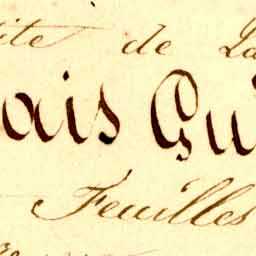 ite de La
ais Gu
Feuilles